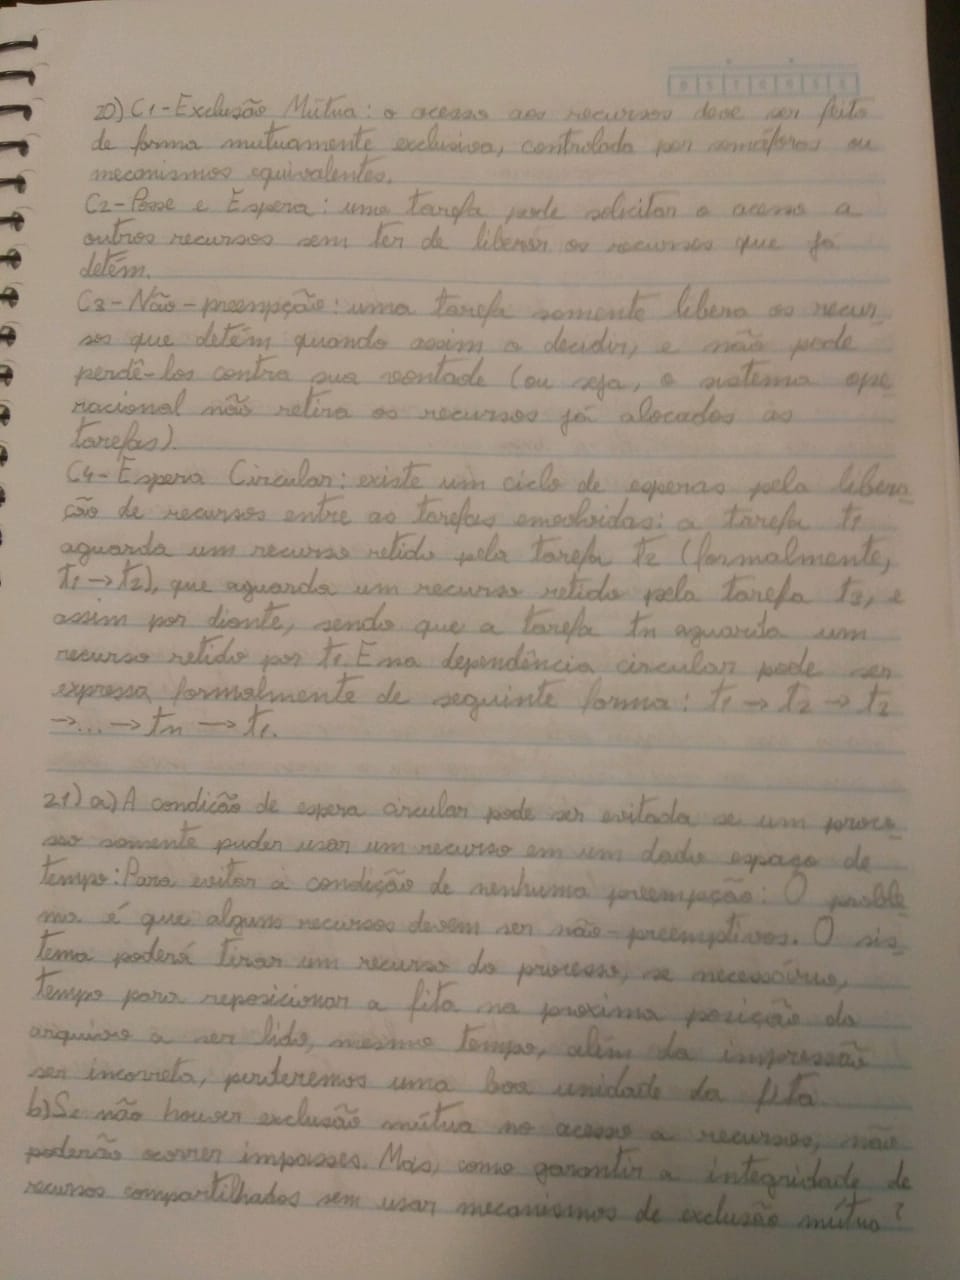 20) C1-Exclusão Mútua: o acesso aos recursos deve ser feito
de forma mutuamente exclusiva, controlada por semáforos ou
mecanismos equivalentes.
C2-Posse e Espera: uma tarefa pode solicitar o acesso a
outros recursos sem ter de liberar os recursos que já
detém.
C3-Não-preempção: uma tarefa somente libera os recur_
sos que detém quando assim o decidir, e não pode
perdê-los contra sua vontade (ou seja, o sistema ope
racional não retira os recursos já alocados às
tarefas).
C4-Espera Circular: existe um ciclo de esperas pela libera_
ção de recursos entre as tarefas envolvidas: a tarefa t1
aguarda um recurso retido pela tarefa t2 (formalmente,
t1→t2), que aguarda um recurso retido pela tarefa t3, e
assim por diante, sendo que a tarefa tn aguarda um
recurso retido por t1. Ena dependência circular pode ser
expressa formalmente de seguinte forma: t1→t2→t2
→...→tn→t1.
21) a) A condição de espera circular pode ser evitada se um proce_
sso somente puder usar um recurso em um dado espaço de
tempo: Para evitar a condição de nenhuma preempção: O proble_
ma é que alguns recursos devem ser não-preemptivos. O sis_
tema poderá tirar um recurso do processo, se necessário,
tempo para reposicionar a fita na proxima posição do
arquivo a ser lido, mesmo tempo, além da impressão
ser incorreta, perderemos uma boa unidade da fita
b) Se não houver exclusão mútua no acesso a recursos, não
poderão ocorrer impasses. Mas, como garantir a integridade de
recursos compartilhados sem usar mecanismos de exclusão mútua?